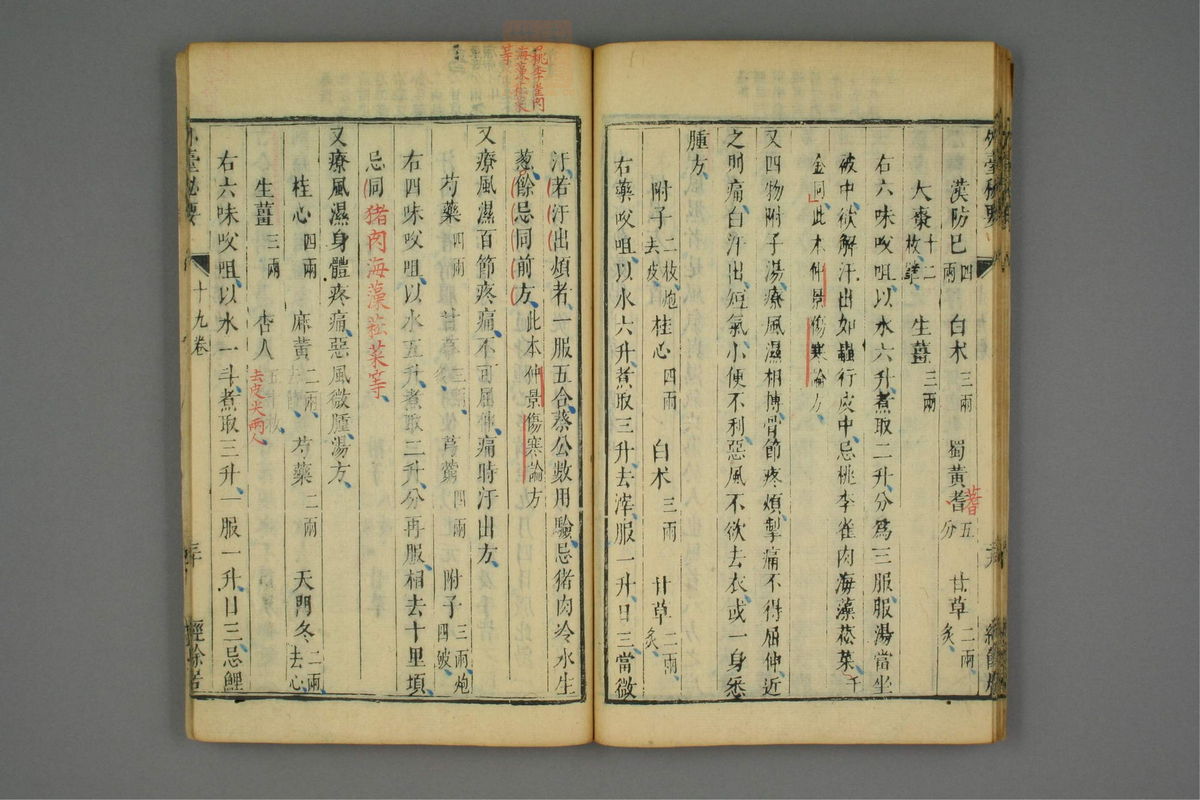 漢防已四兩 白术三兩 蜀黃耆五分 甘草二兩炙
蓍
大棗十二枚擘 生薑三兩
右六味㕮咀以水六升煮取二升分爲三服服湯當坐
被中欲解汗出如蟲行皮中忌桃李雀肉海藻菘菜千
金同此本仲景傷寒論方
又四物附子湯療風濕相摶骨節疼煩掣痛不得屈伸近
之則痛白汗出短氣小便不利惡風不欲去衣或一身悉
腫方
附子二枚炮去皮 桂心四兩 白术三兩 甘草二兩炙
右藥㕮咀以水六升煮取三升去滓服一升日三當微
桃李雀肉
海藻菘菜
等
汗若汗出煩者一服五合蔡公數用驗忌猪肉冷水生
葱餘忌同前方此本仲景傷寒論方
又療風濕百節疼痛不可屈伸痛時汗出方
芍藥四兩 甘草三兩 芎藭四兩 附子三兩炮四破
右四味㕮咀以水五升煮取二升分再服相去十里頃
忌同猪肉海藻菘菜等
又療風濕身體疼痛惡風微腫湯方
桂心四兩 麻黃二兩 芍藥二兩 天門冬二兩去心
生薑三兩 杏人五十枚
去皮尖兩人
右六味㕮咀以水一斗煮取三升一服一升日三忌鯉
外臺秘要 十九卷